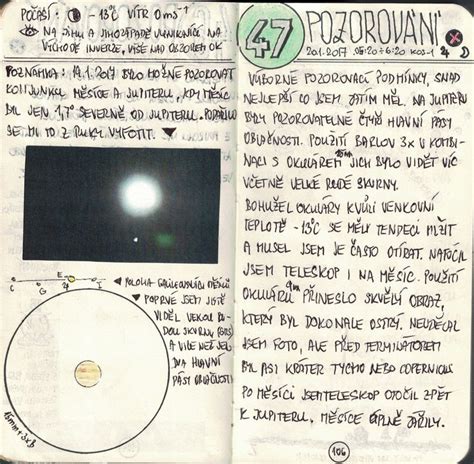 POČASÍ: -13°C VÍTR 0 ms⁻¹
NA JIHU A JIHOZÁPADĚ
VÝCHODĚ INVERZE, VÝŠE NAD OBZOREM OK
POZNÁMKA: 19.1.2017 BYLO MOŽNÉ POZOROVAT
KONJUNKCI MĚSÍCE A JUPITERU, KDY MĚSÍC
BYL JEN 1,7° SEVERNĚ OD JUPITERU. PODAŘILO
SE MI TO Z RUKY VYFOTIT.
C G E I
POLOHA GALILEOVSKÝCH MĚSÍCŮ
POPRVÉ JSEM JISTĚ
VIDĚL VELKOU RU-
DOU SKVRNU (GRS)
A VÍCE NEŽ JEN
DVA HLAVNÍ
PÁSY OBLAČNOSTI
15mm+3xB
47 POZOROVÁNÍ
20.1.2017 05:20÷6:20 KOS-1
VÝBORNÉ POZOROVACÍ PODMÍNKY, SNAD
NEJLEPŠÍ CO JSEM ZATÍM MĚL. NA JUPITERU
BYLY POZOROVATELNÉ ČTYŘI HLAVNÍ PÁSY
OBLAČNOSTI. POUŽITÍ BARLOW 3x V KOMBI-
NACI S OKULÁREM 15mm JICH BYLO VIDĚT VÍC
VČETNĚ VELKÉ RUDÉ SKVRNY.
BOHUŽEL OKULÁRY KVŮLI VENKOVNÍ
TEPLOTĚ -13°C SE MĚLY TENDECI MLŽIT
A MUSEL JSEM JE ČASTO OTÍRAT. NATOČIL
JSEM TELESKOP I NA MĚSÍC. POUŽITÍ
OKULÁRU 9mm PŘINESLO SKVĚLÝ OBRAZ,
KTERÝ BYL DOKONALE OSTRÝ. NEUDĚLAL
JSEM FOTO, ALE PŘED TERMINÁTOREM
BYL ASI KRÁTER TYCHO NEBO COPERNICUS
PO MĚSÍCI JSEM TELESKOP OTOČIL ZPĚT
K JUPITERU. MĚSÍCE ÚPLNĚ ZÁŘILY.
106